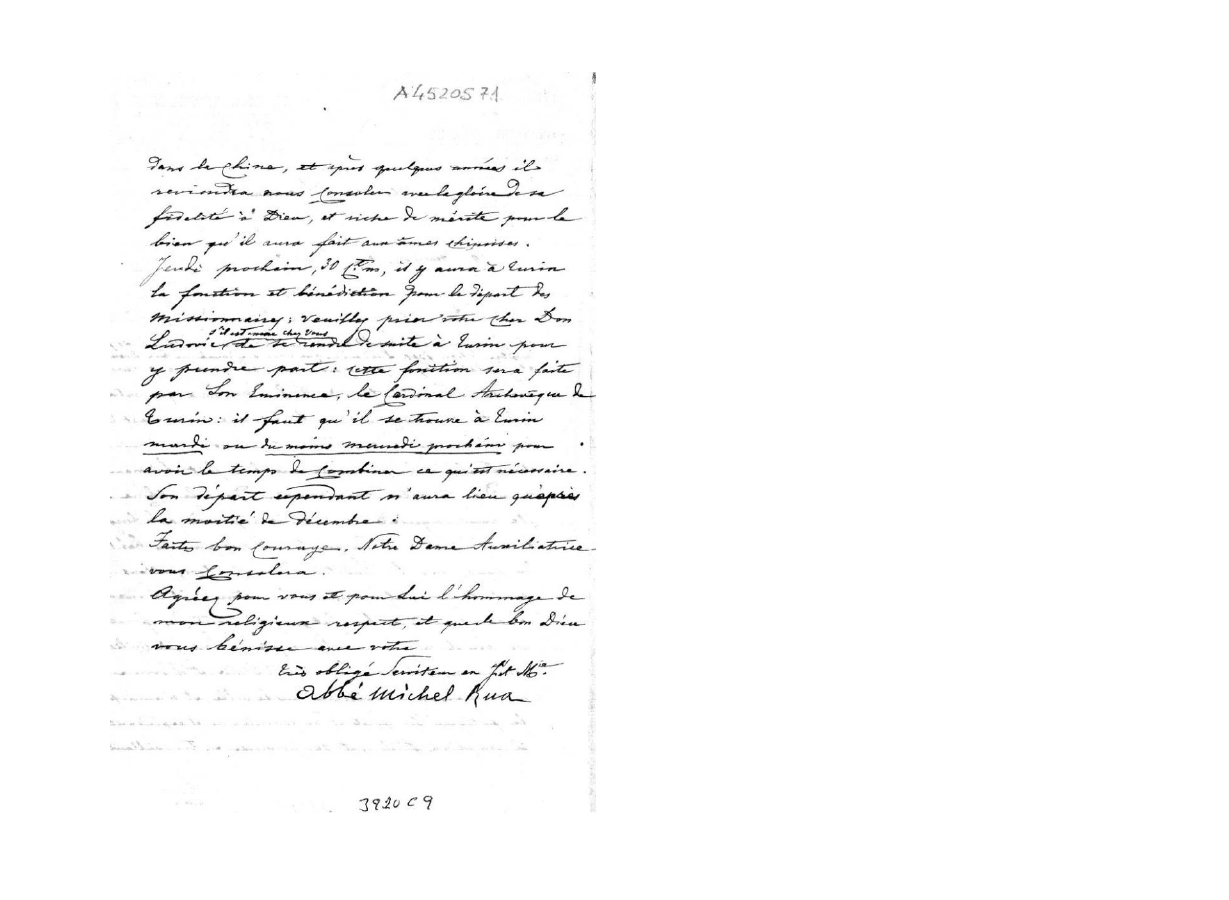 A4520571
dans la Chine, et après quelques années il
reviendra nous consoler avec la gloire de sa
fidelité à Dieu, et riche de mérite pour le
bien qu'il aura fait aux âmes chinoises.
Jeudi prochain, 30 Ct m, il y aura à Turin
la fonction et bénédiction pour le départ des
missionnaires; veuillez prier votre cher Don
s'il est encore chez vous
Ludovic de se rendre de suite à Turin pour
y prendre part: cette fonction sera faite
par Son Eminence, le Cardinal Archevêque de
Turin: il faut qu'il se trouve à Turin
mardi ou du moins mercredi prochain pour
avoir le temps de combiner ce qu'est nécessaire.
Son départ cependant n'aura lieu qu'après
la moitié de décembre.
Faites bon courage. Notre Dame Auxiliatrice
vous consolera.
Agréez pour vous et pour Lui l'hommage de
mon religieux respect, et que le bon Dieu
vous bénisse avec votre
très obligé Serviteur en J. et M.ie
Abbé Michel Rua
3920 C 9